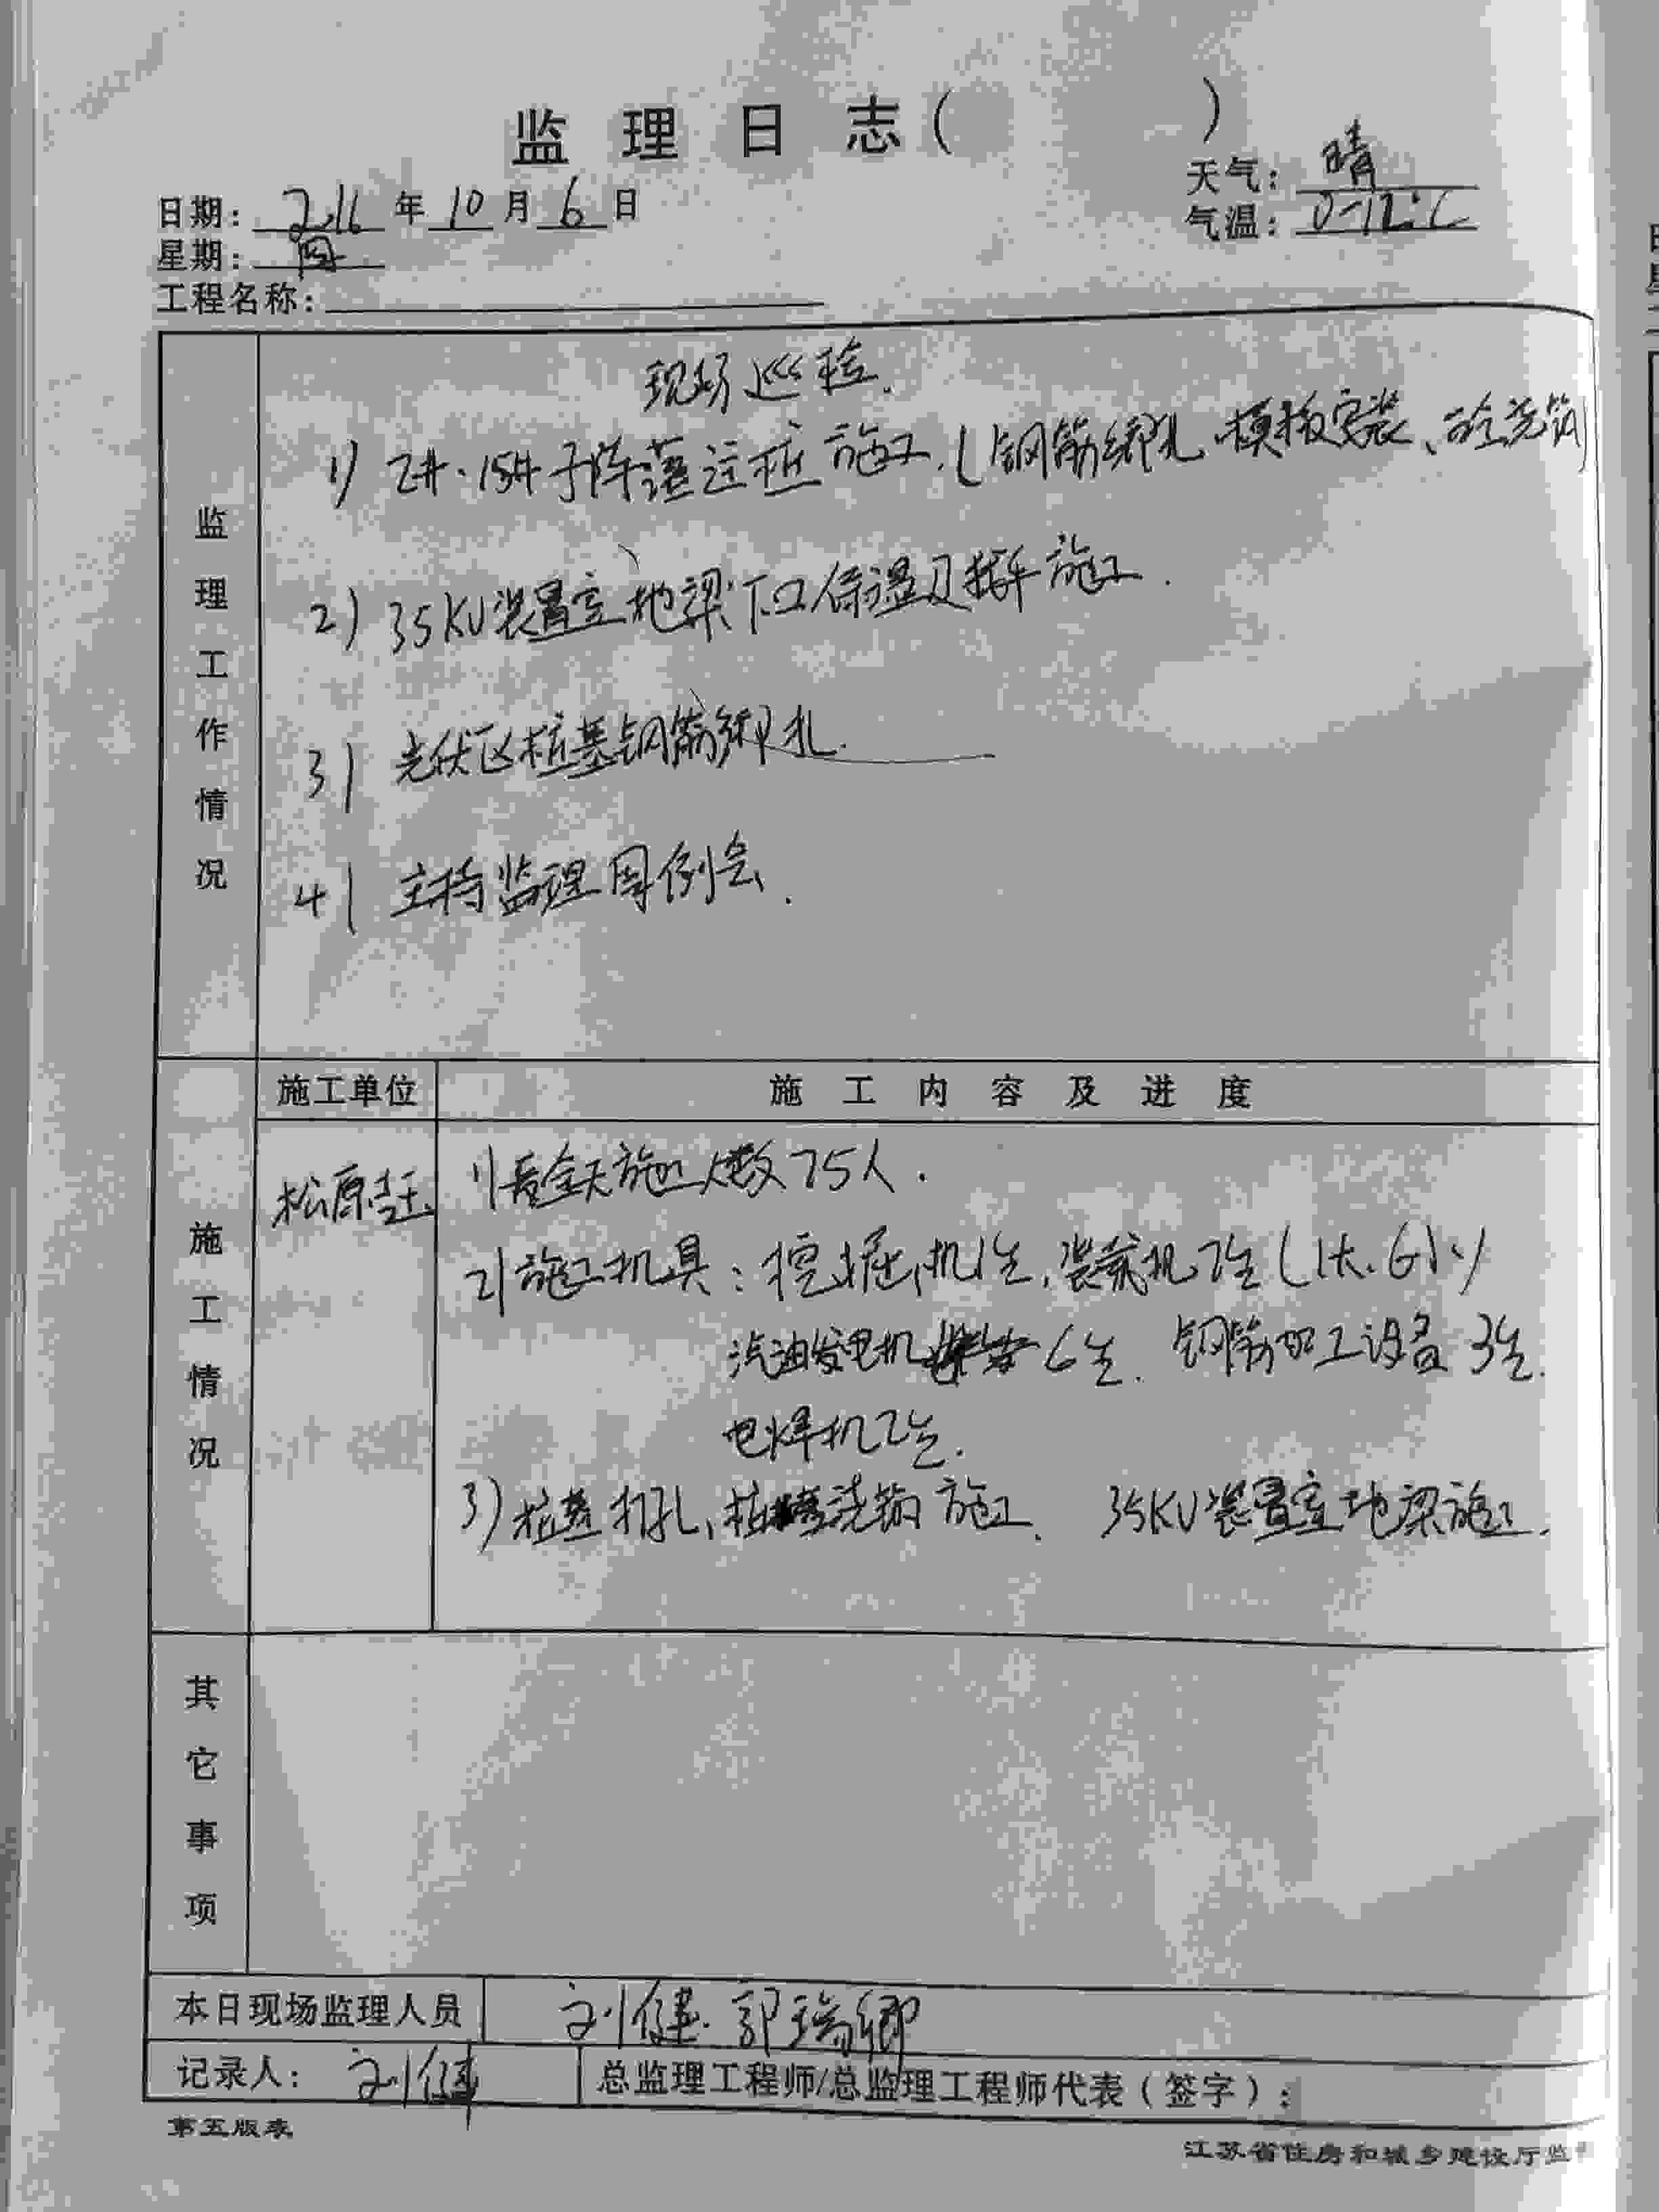 监理日志( )
天气: 晴
日期: 2016年10月6日
气温: 0-12℃
星期: 四
工程名称:
现场巡检.
监理工作情况
1) 2#·15#子阵灌注桩施工.(钢筋绑扎.模板安装、砼浇筑)
2) 35KV装置室地梁下口保温及拆车施工.
3) 光伏区桩基钢筋绑扎.
4) 主持监理周例会.
施工单位 施工内容及进度
施工情况
松原 1) 全天施工人数75人.
2) 施工机具: 挖掘机1台,装载机7台(1大.6小)
汽油发电机 6台. 钢筋加工设备3台.
电焊机2台.
3) 桩基打孔、桩基浇筑施工. 35KV装置室地梁施工.
其它事项
本日现场监理人员 刘健.郭瑞卿
记录人: 刘健 总监理工程师/总监理工程师代表(签字):
第五版表
江苏省住房和城乡建设厅监